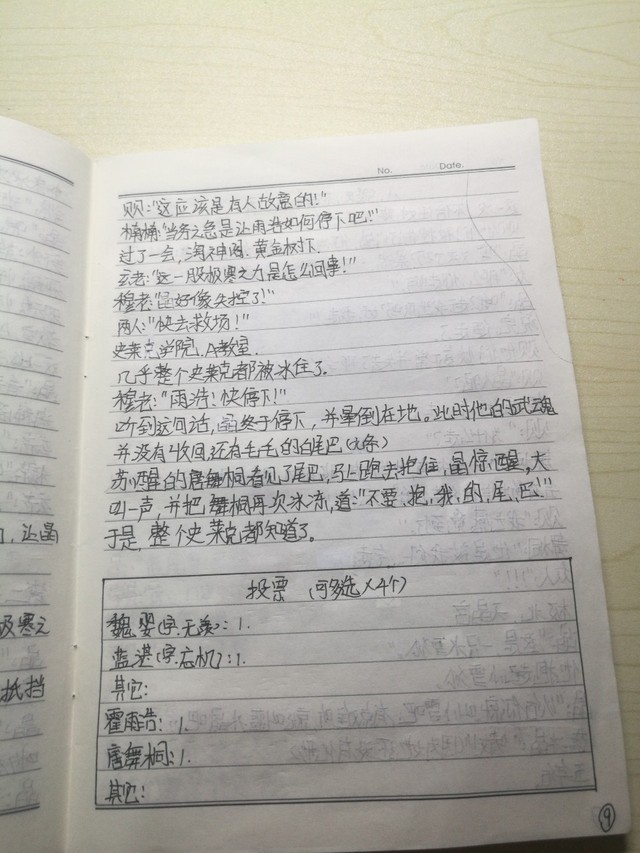 No. Date.
贝:"这应该是有人故意的!"
楠楠:"当务之急是让雨浩如何停下吧!"
过了一会,海神阁.黄金树下.
玄老:"这一股极寒之力是怎么回事!"
穆老:"好像失控了!"
两人:"快去救场!"
史莱克学院.A教室.
几乎整个史莱克都被冰住了.
穆老:"雨浩!快停下!"
听到这句话,终于停下,并晕倒在地。此时他的武魂
并没有收回,还有毛毛的白尾巴(九条)
苏醒的唐舞桐看见了尾巴,马上跑去抱住,惊醒,大
叫一声,并把舞桐再次冰冻,道:"不.要.抱.我.的.尾.巴!"
于是,整个史莱克都知道了。
投票 (可多选×4个)
魏婴(字.无羡):1.
蓝湛(字.忘机):1.
其它:
霍雨浩:1.
唐舞桐:1.
其它:
9
让
极寒之
抵挡